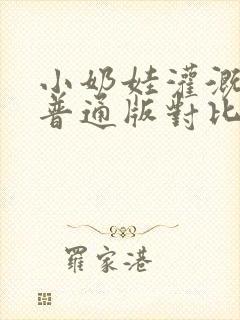 小奶娃灌溉
普通版對比
羅家港